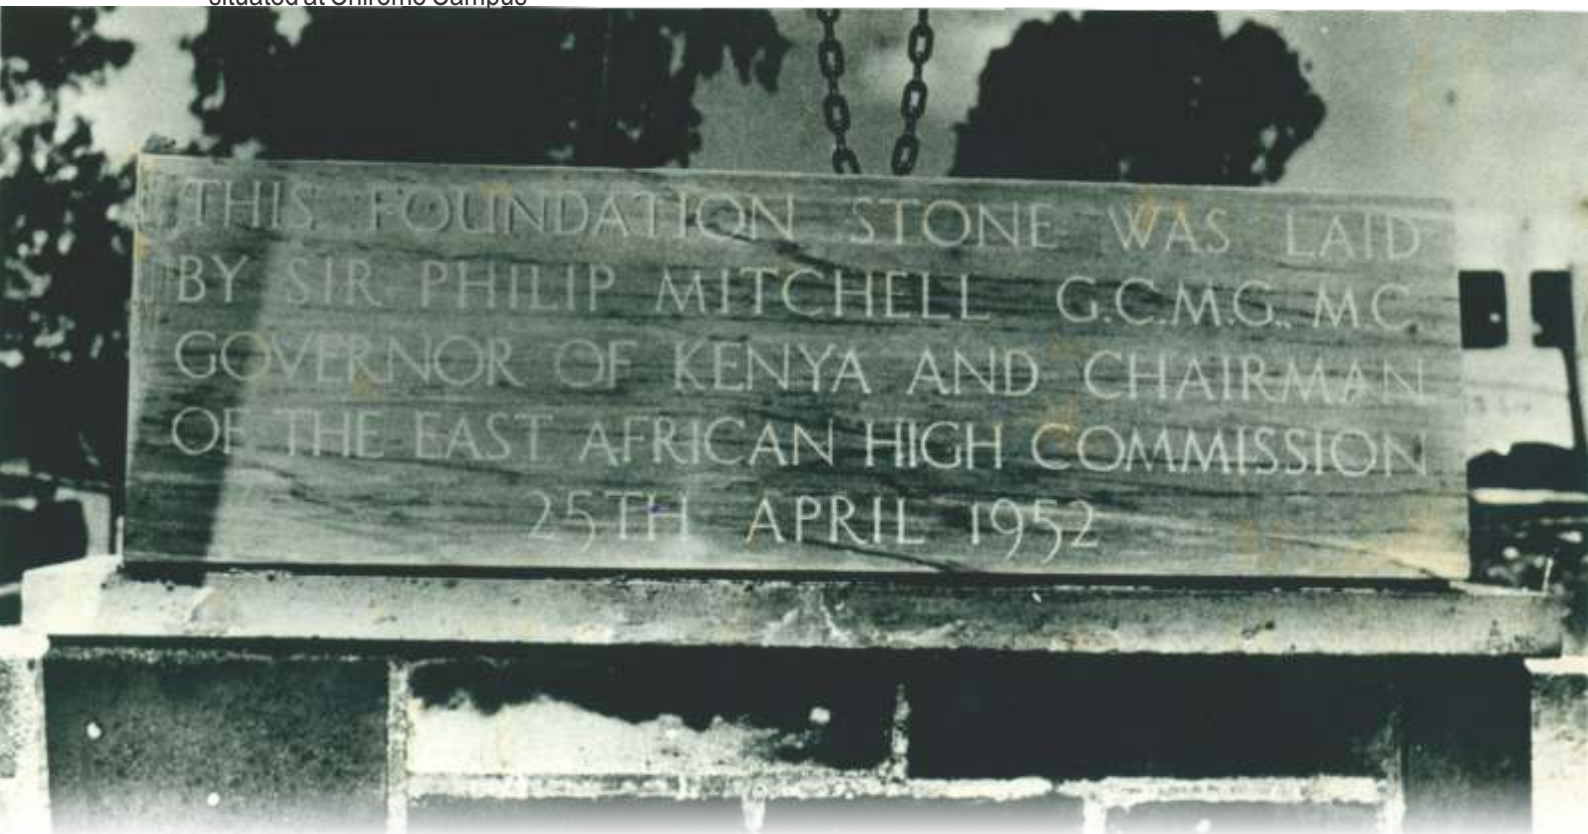 situated at Chiromo Campus
THIS FOUNDATION STONE WAS LAID
BY SIR PHILIP MITCHELL G.C.M.G., M.C.
GOVERNOR OF KENYA AND CHAIRMAN
OF THE EAST AFRICAN HIGH COMMISSION
25TH APRIL 1952